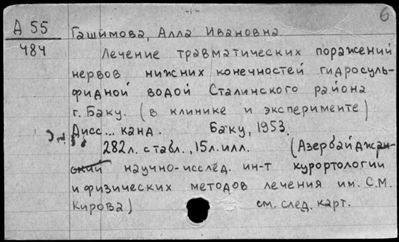 6
Д 55
484
Гашимова, Алла Ивановна
Лечение травматических поражений
нервов нижних конечностей гидросуль-
фидной водой Сталинского района
г. Баку. (в клинике и эксперименте)
Дисс... канд. Баку, 1953.
282л. с табл., 15л. илл. (Азербайджан-
ский научно-исслед. ин-т курортологии
и физических методов лечения им. С.М.
Кирова) см. след. карт.